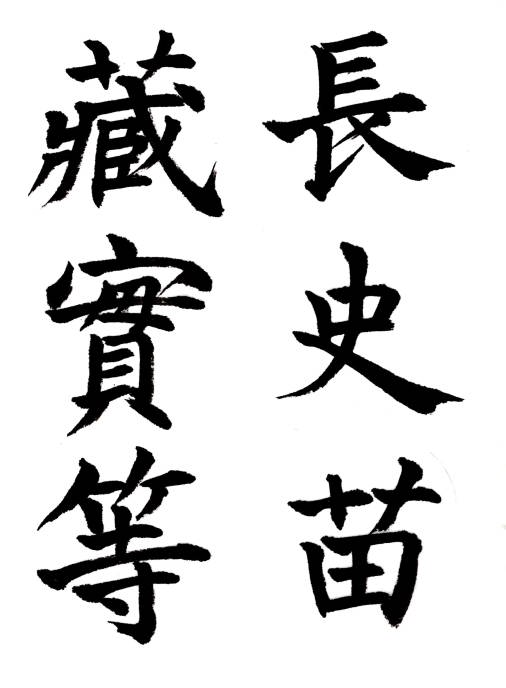 長史苗
藏實等